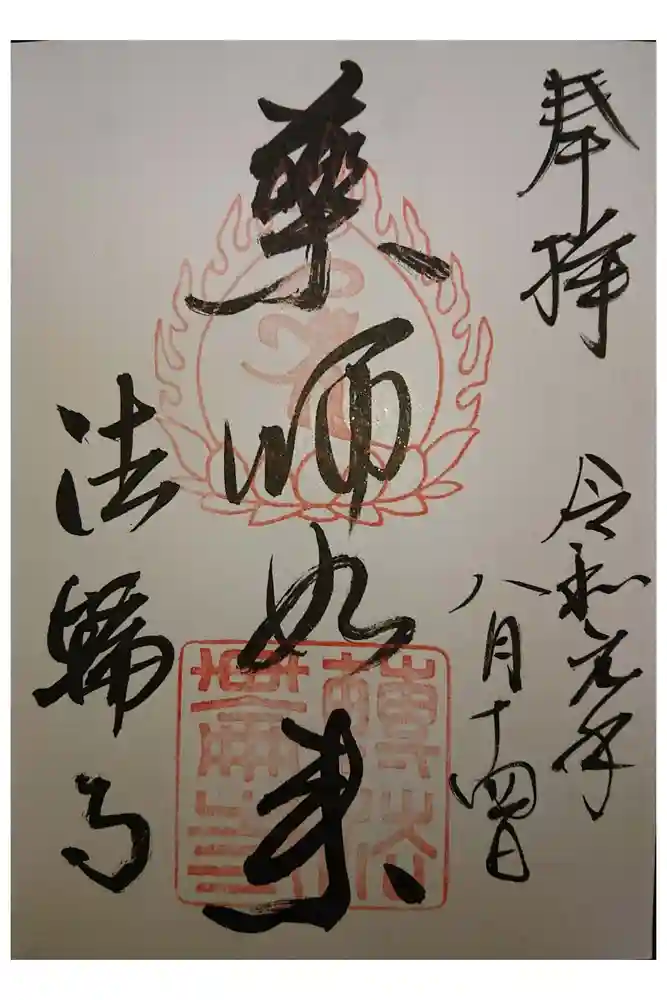 奉拝
令和元年
八月十四日
薬師如来
法輪寺